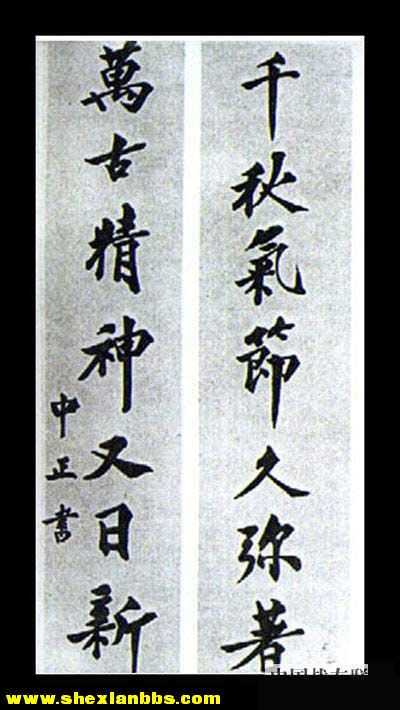 千秋氣節久弥著
萬古精神又日新
中正書
www.shexlanbbs.com